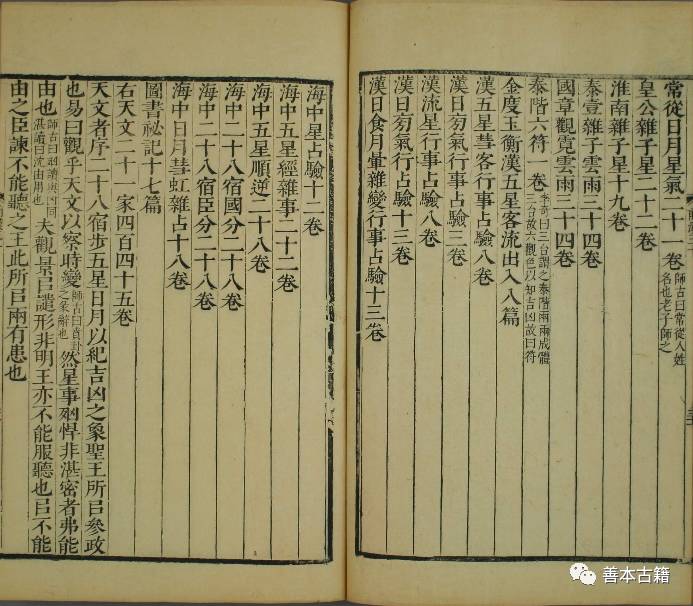 常從日月星氣二十一卷師古曰常從人姓名也老子師之
皇公雜子星二十二卷
淮南雜子星十九卷
泰壹雜子雲雨三十四卷
國章觀霓雲雨三十四卷
泰階六符一卷李奇曰三台謂之泰階兩兩成體三台故六觀色以知吉凶故曰符
金度玉衡漢五星客流出入八篇
漢五星彗客行事占驗八卷
漢日旁氣行事占驗三卷
漢流星行事占驗八卷
漢日旁氣行占驗十三卷
漢日食月暈雜變行事占驗十三卷
海中星占驗十二卷
海中五星經雜事二十二卷
海中五星順逆二十八卷
海中二十八宿國分二十八卷
海中二十八宿臣分二十八卷
海中日月彗虹雜占十八卷
圖書祕記十七篇
右天文二十一家四百四十五卷
天文者序二十八宿步五星日月以紀吉凶之象聖王所㠯參政
也易曰觀乎天文以察時變師古曰賁卦之彖辭也然星事殈悍非湛密者弗能
由也師古曰殈讀與凶同湛讀曰沈由用也夫觀景㠯譴形非明王亦不能服聽也㠯不能
由之臣諫不能聽之王此所㠯兩有患也
善本古籍